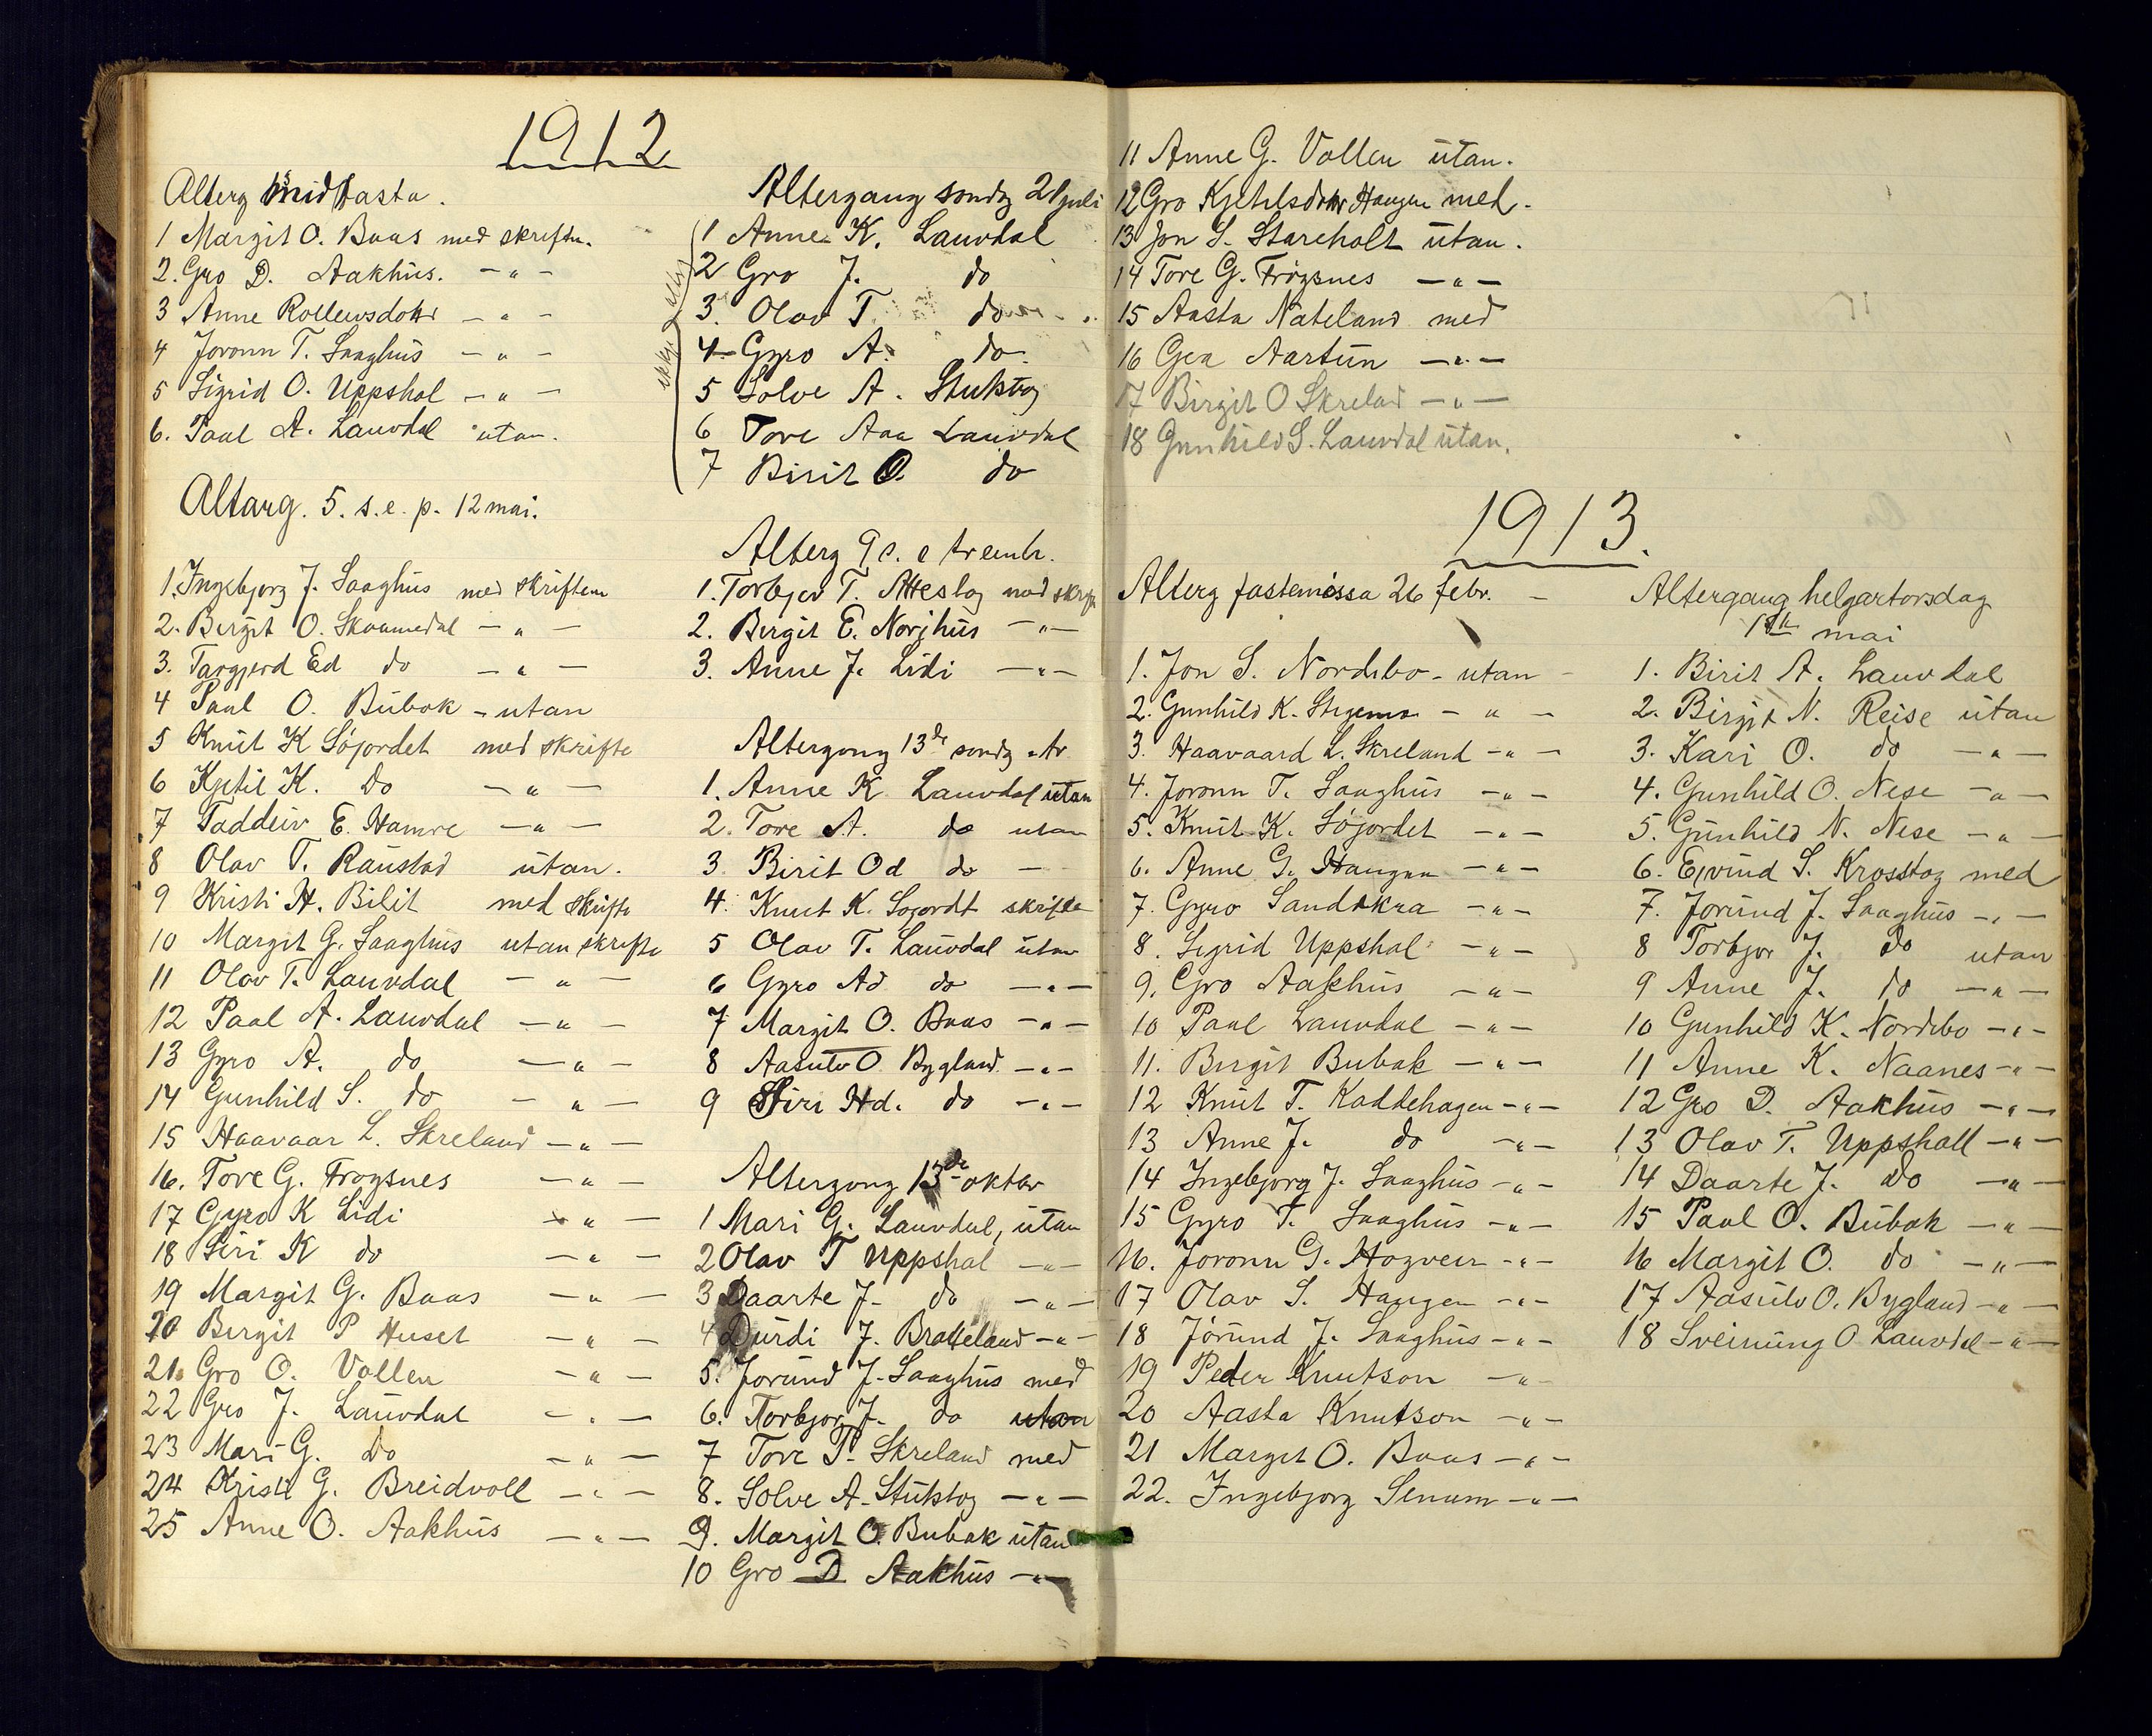 1912
Alterg midfasta.
1 Margit O. Baas med skrifte.
2. Gro D. Aakhus. - " -
3 Anne Rollewsdottr - " -
4 Joronn T. Saaghus - " -
5 Sigrid O. Uppshal - " -
6. Paal A. Lauvdal utan.
Altarg. 5. s. e. p. 12 mai.
1. Ingebjorg J. Saaghus med skriftem
2. Bergit O. Skaamedal - " -
3. Targjerd Ed do - " -
4 Paal O. Bubak - utan
5 Knut K Søjordet med skrifte
6 Kjetil K. Do - " -
7 Taddeiv E. Hamre - " -
8 Olav T. Raustad utan.
9 Kristi H. Bilit med skrifte
10 Margit G. Saaghus utan skrifte
11 Olav T. Lauvdal - " -
12 Paal A. Lauvdal - " -
13 Gyro A. do - " -
14 Gunhild S. do - " -
15 Haavaar L. Skreland - " -
16. Tore G. Frøysnes - " -
17 Gyro K Lidi - " -
18 Siri K do - " -
19 Margit G. Baas - " -
20 Bergit P Huset - " -
21. Gro O. Vollen - " -
22 Gro J. Lauvdal - " -
23 Mari G. do - " -
24 Kristi G. Breidvoll - " -
25 Anne O. Aakhus - " -
Altergang sondg 21 juli
1 Anne K. Lauvdal
2 Gro J. do
3. Olav T. do
4 Gyro A. do
5 Solve A. Stukstøg
6 Tore Aaa Lauvdal
7 Birit O. do
Alterg 9 s. e tr
1. Torbjør T. Atteslog med skrifte
2. Bergit E. Norjhus - " -
3. Anne J. Lidi - " -
Altergong 13de sondg. tr
1. Anne K Lauvdal utan
2. Tore A. do utan
3 Birit Od do -
4. Knut K. Søjordt skrifte
5 Olav T. Lauvdal utan
6 Gyro Ad do - " -
7 Margit O. Baas - " -
8 Aasulv O. Bygland - " -
9 Siri Hd. do - " -
Altergong 13de oktbr
1 Mari G. Lauvdal, utan
2 Olav T Uppshal - " -
3 Daarte J. do - " -
4 Durdi J. Bratteland - " -
5. Jorund J. Saaghus med
6. Torbjør J. do utan
7 Tore T. Skreland med
8. Solve A. Stukstøg - " -
9. Margit O. Bubak utan
10 Gro D Aakhus - " -
11 Anne G. Vollen utan.
12 Gro Kjetilsdottr Haugen med.
13 Jon S. Stareholt utan.
14 Tore G. Frøysnes - " -
15 Aasta Nateland med
16 Gea Aartun - " -
17 Birgit O Skreland - " -
18 Gunhild S. Lauvdal utan.
1913.
Alterg fastemessa 26 febr. -
1. Jon S. Nordibø - utan
2. Gunhild K. - " -
3. Haavaard L. Skreland - " -
4. Joronn T. Saaghus - " -
5. Knut K. Søjordet - " -
6. Anne G. Haugen - " -
7. Gyro Sandokra - " -
8. Sigrid Uppshal - " -
9. Gro Aakhus - " -
10 Paal Lauvdal - " -
11. Birgit Bubak - " -
12 Knut T. Kaddehagen - " -
13 Anne J. do - " -
14 Ingebjorg J. Saaghus - " -
15 Gyro T. Saaghus - " -
16. Joronn G. - " -
17 Olav S. Haugen - " -
18 Jórund J. Saaghus - " -
19 Peder Knutson - " -
20 Aasta Knutson - " -
21 Margit O. Baas - " -
22. Ingebjorg Senum - " -
Altergang helgartorsdag
1ste mai
1. Birit A. Lauvdal
2. Birgit N. Reise utan
3. Kari O. do - " -
4. Gunhild O. Nese - " -
5. Gunhild N. Nese - " -
6. Eivind S. Krosstøg med
7. Jorund J. Saaghus - " -
8 Torbjør J. do utan
9 Anne J. do - " -
10 Gunhild K. Nordibø - " -
11 Anne K. Naanes - " -
12 Gro D. Aakhus - " -
13 Olav T. Uppshall - " -
14 Daarte J. do - " -
15 Paal O. Bubak - " -
16 Margit O. do - " -
17 Aasulv O. Bygland - " -
18 Sveinung O Lauvdal - " -